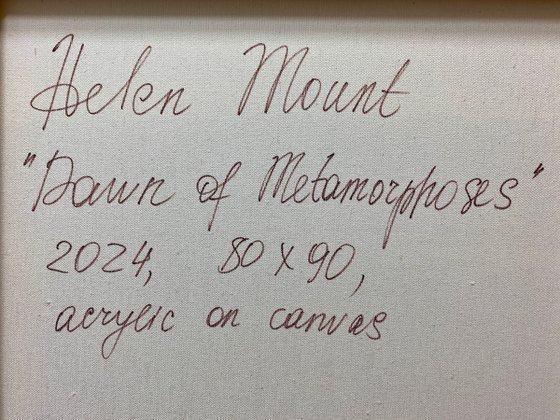 Helen Mount
"Dawn of Metamorphoses"
2024, 80 x 90,
acrylic on canvas